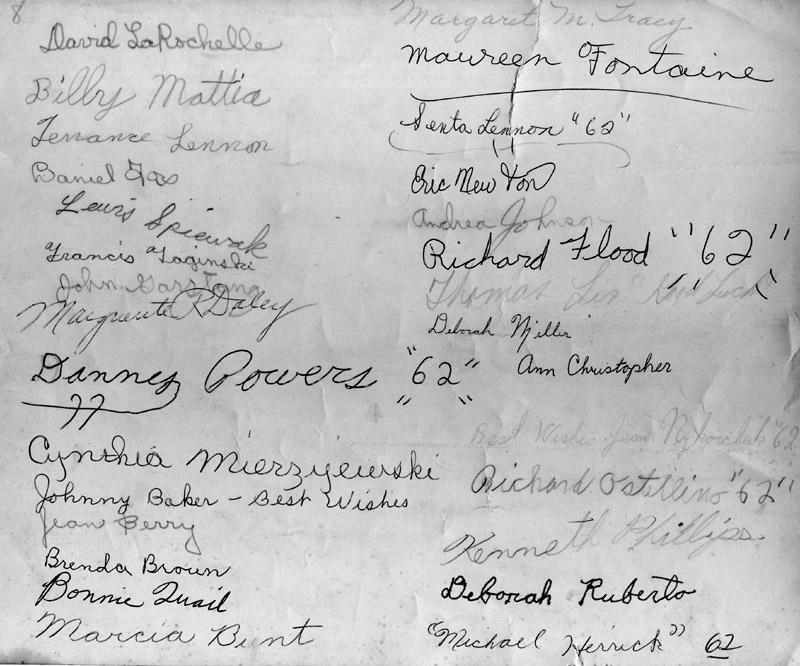 8
David LaRochelle
Billy Mattia
Terrance Lennon
Daniel
Lewis Spiewak
Francis Laginski
John Garstang
Marguerite R Daley
Danney Powers "62"
Cynthia Mierzyewski
Johnny Baker - Best Wishes
Jean Berry
Brenda Brown
Bonnie Quail
Marcia Bunt
Margaret M. Tracy
Maureen Fontaine
Senta Lennon "62"
Eric Newton
Andrea Johnson
Richard Flood "62"
Thomas Lis Good Luck
Deborah Miller
Ann Christopher
Best Wishes Jean "62
Richard Ostellino "62"
Kenneth Phillips
Deborah Ruberto
"Michael Herrick" 62